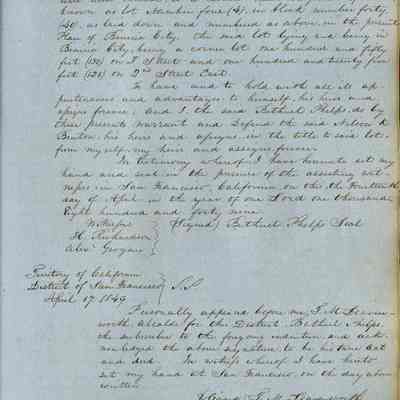 known as lot Number four (4), in block number forty
(40), as laid down and numbered as above, in the present
Plan of Benicia City, the said lot lying and being in
Benicia City, being a corner lot one hundred and fifty
feet (150) on J Street and one hundred and twenty five
feet (125) on 2nd Street East.
To have and to hold with all its ap-
purtenances and advantages to himself, his heirs and
assigns forever. And I the said Bethuel Phelps do by
these presents warrant and defend the said Nelson R.
Benton, his heirs and assigns, in the title to said lot,
from myself, my heirs and assigns forever.
In testimony whereof I have hereunto set my
hand and seal in the presence of the assisting wit-
nesses, in San Francisco, California on this the fourteenth
day of April in the year of our Lord one thousand
Eight hundred and forty nine.
(Signed) Bethuel Phelps Seal
H. Richardson
Alexr Grogan
Territory of California
District of San Francisco } S.S.
April 17. 1849.
Personally appeared before me, T. M. Leaven-
worth, Alcalde for the District, Bethuel Phelps,
the subscriber to the foregoing indenture and ack-
nowledged the above signature to be his true act
and deed. In witness whereof I have hereto
set my hand at San Francisco, on the day above
written.
Signed T. M. Leavenworth